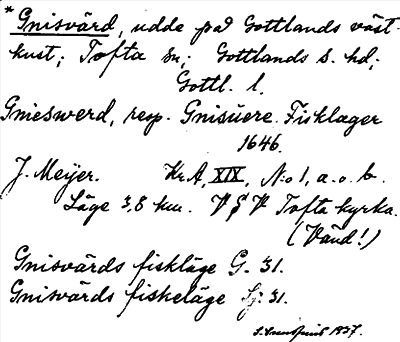 * Gnisvärd, udde på Gottlands väst-
kust; Tofta sn; Gottlands s. hd;
Gottl. l.
Gnieswerd, resp. Gnisuere Fisklager
1646.
J. Meijer. KrA, XIX, N:o 1, a. o. b.
Läge 3,8 km. V S V Tofta kyrka.
(Vänd!)
Gnisvärds fiskläge G. 31.
Gnisvärds fiskeläge Sj: 31.
1937.